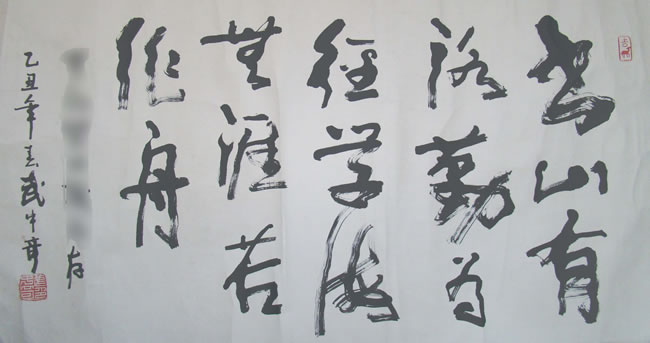 书山有
路勤为
径学海
無涯苦
作舟
存
乙丑年春武中奇